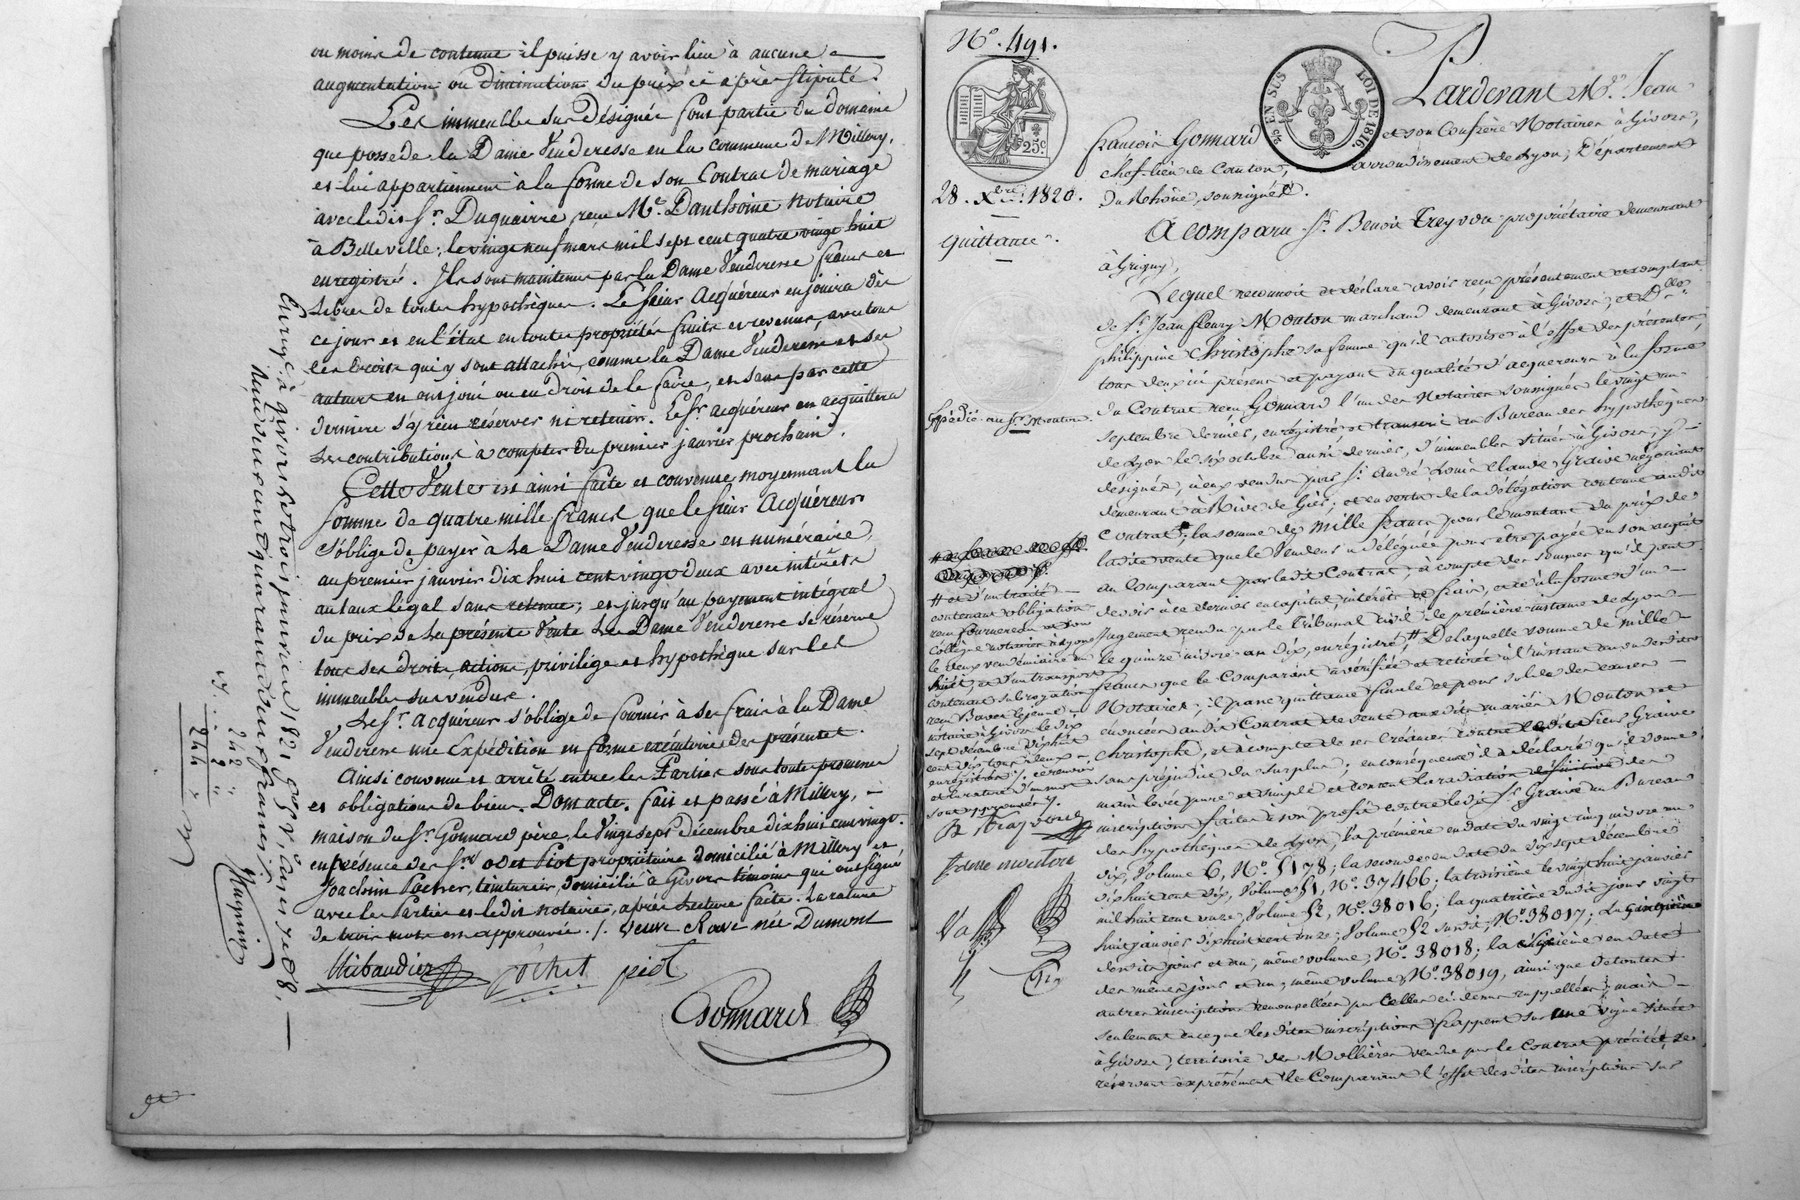 ou moins de contenue il puisse y avoir lieu à aucune
augmentation ou diminution du prix ci après stipulé.
Les immeubles sus désignés font partie du domaine
que possede la Dame Venderesse en la commune de Millery,
et lui appartiennent à la forme de son Contrat de mariage
avec ledit Sr. Duquairre, reçu Me. Danthoine Notaire
à Belleville, le vingt neuf mars mil sept cent quatre vingt huit
enregistré. Ils sont maintenus par la Dame Venderesse francs et
libres de toutes hypothèques. Le Sieur Acquéreur en jouira dès
ce jour et en l'état en toute propriétés fruits et revenus, avec tous
les Droits qui y sont attachés, comme la Dame Venderesse et ses
auteurs en ont joui ou eu droit de le faire, et sans par cette
dernière s'y rien réserver ni retenir. Le Sr. acquéreur en acquittera
les contributions à compter du premier janvier prochain.
Cette Vente est ainsi faite et convenue moyennant la
somme de quatre mille francs que le Sieur Acquéreur
s'oblige de payer à la Dame Venderesse en numéraire,
au premier janvier dix huit cent vingt deux avec intérêts
au taux légal sans retenue; et jusqu'au payement intégral
du prix de la présente Vente la Dame Venderesse se réserve
tous ses droits, actions, privilège et hypothèque sur les
immeubles sus vendus.
Le Sr. acquéreur s'oblige de fournir à ses frais à la Dame
Venderesse une Expédition en forme exécutoire des présentes.
Ainsi convenu et arrêté entre les Parties sous toute promesse
et obligations de biens. Dont acte. fait et passé à Millery,
maison du Sr. Gonnard père, le vingt sept décembre dix huit cent vingt.
en présence des Srs. Odet Piot propriétaire domicilié à Millery et
Joachim Pochet, teinturier, domicilié à Givors témoins qui ont signé
avec les Parties et ledit notaire, après lecture faite. La rature
de trois mots est approuvée. /. Veuve Rave née Dumont
Thibaudier pochet piot
Gonnard
Enregé. à Givors le trois janvier 1821, fo. 58 Vo. cases 7 et 8,
242 "
2 "
244 "
No. 491.
25 EN SUS
LOI DE 1816.
25c.
28. Xbre. 1820.
Quittance.
Pardevant Me. Jean
françois Gonnard et son Confrère Notaires à Givors,
chef-lieu de Canton, arrondissement de Lyon, Département
du Rhône, soussignés.
A comparu Sr. Benoit Treyvou propriétaire demeurant
à Grigny,
Lequel reconnoit et déclare avoir reçu présentement et comptant
de Sr. Jean fleury Mouton marchand demeurant à Givors, et Dlle.
philippine Christophe sa femme qu'il autorise à l'effet des présentes,
tous deux ici présens et payant en qualité d'acquereurs à la forme
du Contrat reçu Gonnard l'un des Notaires soussignés le vingt un
septembre dernier, enregistré et transcrit au Bureau des hypothèques
de Lyon le six octobre aussi dernier, d'immeubles situés à Givors, y
désignés, à eux vendus par Sr. André Louis Claude Graive négociant
demeurant à Rive de Gier; et en vertu de la délégation contenue audit
Contrat; la somme de mille francs pour le montant du prix de
ladite vente que le Vendeur a déléguée pour être payée en son acquit
au Comparant par ledit Contrat, à compte des sommes qu'il peut
devoir à ce dernier en capital, intérêts et frais, et à la forme d'un
Jugement rendu par le Tribunal civil de première instance de Lyon
le quinze nivose an dix, enregistré, # De laquelle somme de mille
francs que le Comparant a vérifiée et retirée à l'instant au vu desdits
Notaires, il passe quittance finale et pour solde des causes
énoncées audit Contrat de vente auxdits mariés Mouton et
Christophe, et à compte de ses Créances contre ledit Sieur Graive
sans préjudice du surplus; en conséquence il a déclaré qu'il donne
main levée pure et simple et consent la radiation définitive des
inscriptions faites à son profit contre ledit Sr. Graive au Bureau
des hypothèques de Lyon, la première en date du vingt cinq nivose an
dix, Volume 6, No. 5178; la seconde en date du dix sept décembre
dix huit cent dix, Volume 51, No. 37466; la troisième le vingt huit janvier
mil huit cent onze, Volume 52, No. 38016; la quatrième dudit jour vingt
huit janvier dix huit cent onze, Volume 52 susdit, No. 38017; la cinquième
desdits jour et an, même volume, No. 38018; la sixième en date
des mêmes jour et an, même volume, No. 38019, ainsi que de toutes
autres inscriptions renouvellées par celles ci dessus rappellées, mais
seulement en ce que lesdites inscriptions frappent sur une vigne située
à Givors, territoire des Mollières vendue par le Contrat précité, se
réservant expressément le Comparant l'effet desdites inscriptions sur
Expédié au Sr. Mouton.
# et d'un traité
contenant obligation
reçu fournereau et son
Collègue notaires à Lyon
le deux vendémiaire an
huit, et d'un transport
contenant subrogation
notaire à Givors le dix
sept décembre dix huit
cent dix tous deux
enregistrés /. ce renvoi
sont approuvés /.
B Treyvou
femme mouton